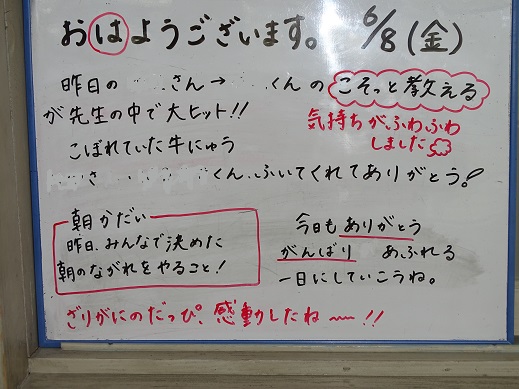 おはようございます。 6/8(金)
昨日の さん→ くんの こそっと教える
が先生の中で大ヒット!!
気持ちがふわふわ
しました
こぼれていた牛にゅう
さ くん、ふいてくれてありがとう!
朝かだい
昨日、みんなで決めた
朝のながれをやること!
今日もありがとう
がんばり あふれる
一日にしていこうね。
ざりがにのだっぴ、感動したね〜!!